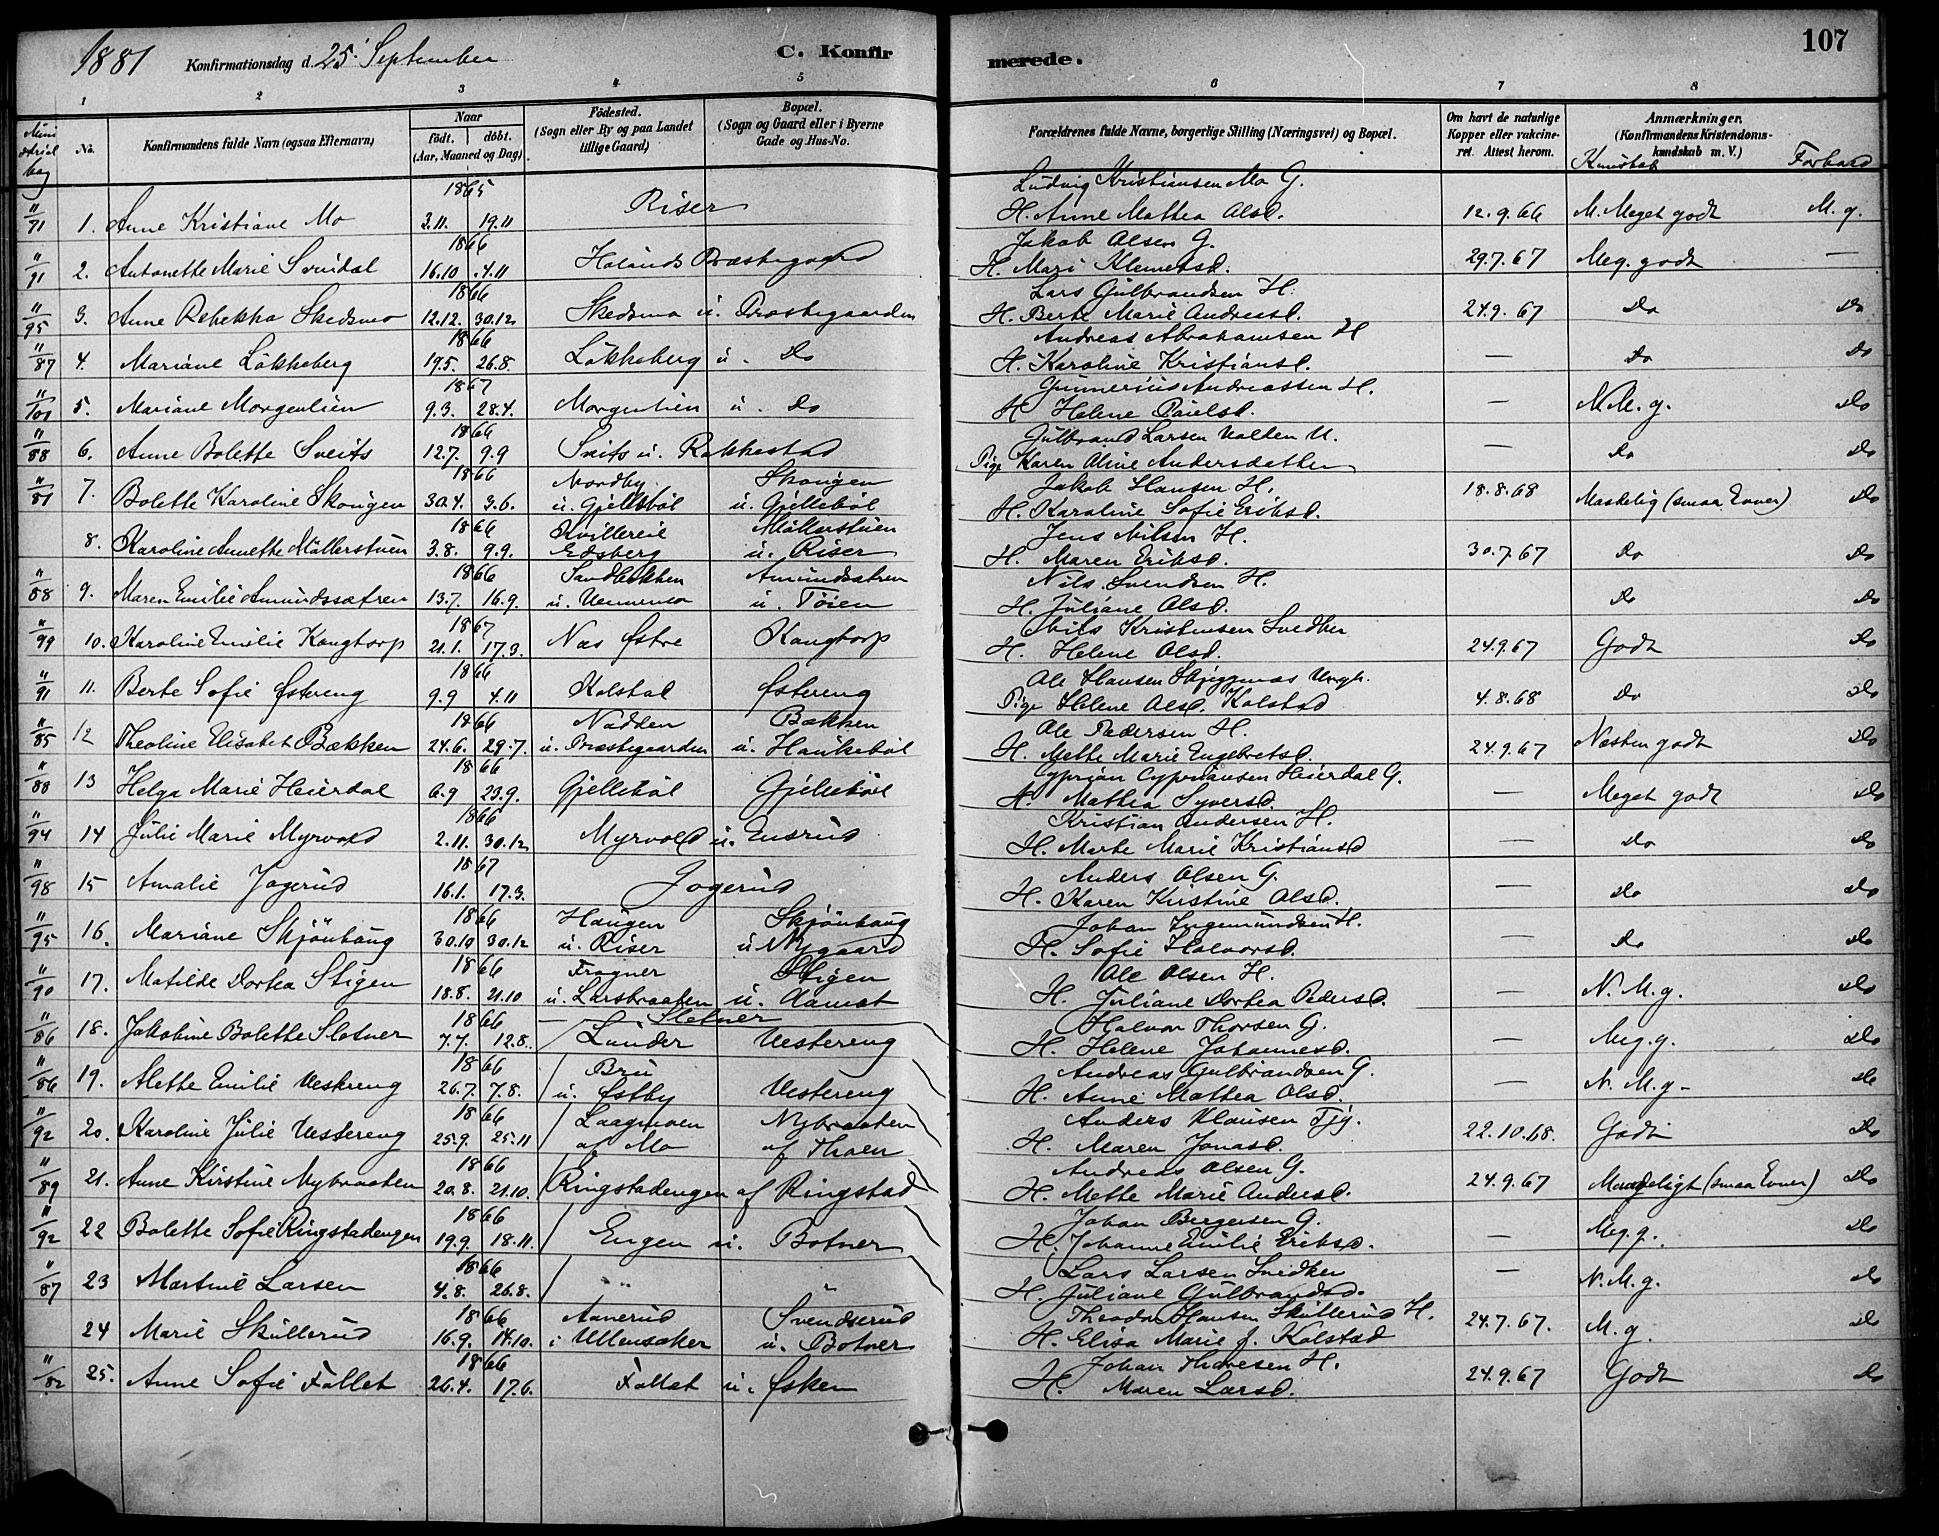 1881 Konfirmationsdag d. 25 September C. Konfirmerede. 107
1 2 3 4 5 6 7 8
No. Konfirmandens fulde Navn (ogsaa Efternavn) Naar født. døbt. (Aar, Maaned og Dag) Födested. (Sogn eller By og paa Landet tillige Gaard) Bopæl. (Sogn og Gaard eller i Byerne Gade og Hus-No. Forældrenes fulde Navne, borgerlige Stilling (Næringsvei) og Bopæl. Om havt de naturlige Kopper eller vakcineret. Attest herom. Anmærkninger. (Konfirmandens Kristendomskundskab m. V.) Kundskab Forhold
1865 Ludvig Kristiansen Mo G.
"/71 1. Anne Kristiane Mo 3.11. 19.11 Riser H. Anne Mattea Olsd. 12.9.66 M. Meget godt M. g.
1866 Jakob Olsen G.
"/91 2. Antonette Marie Svindal 16.10 4.11 Holands Præstegaard H. Mari Klemetsd. 29.7.67 Meg. godt —
1866 Lars Gulbrandsen H.
"/95 3. Anne Rebekka Skedsmo 12.12. 30.12 Skedsmo u. Præstegaarden H. Berte Marie Andersd. 24.9.67 Do Do
1866 Andreas Abrahamsen H
"/87 4. Mariane Lökkeberg 19.5. 26.8. Lökkeberg u. Do H. Karoline Kristiansd. — Do Do
1867 Gunnerius Andreassen H.
"/101 5. Mariane Morgenlien 9.3. 28.4. Morgenlien u. Do H Helene Paulsd. — N. M. g. Do
1866 Gulbrand Larsen Holden U.
"/88 6. Anne Bolette Sveits 12.7. 9.9 Sveits u. Rakkestad Pige Karen Oline Andersdatter — Do Do
1866 Nordby Skougen Jakob Hansen H.
"/81 7. Bolette Karoline Skougen 30.4. 3.6. u. Gjellebøl u. Gjellebøl H. Karoline Sofie Eriksd. 18.8.68 Maskelig (smaa Evner) Do
1866 Kvillereie Møllerstuen Jens Nilsen H.
8. Karoline Annette Møllerstuen 3.8. 9.9. Edsberg u. Riser H. Maren Eriksd. 30.7.67 Do Do
1866 Sandbekken Amundsætren Nils Svendsen H.
"/88 9. Maren Emilie Amundssætren 13.7. 16.9. u. Hemnes u. Töien H. Juliane Olsd. Do Do
1867 Nils Kristensen Snedker
"/99 10. Karoline Emilie Kangtorp 21.1. 17.3. Nas Østre Kangtorp H. Helene Olsd. 24.9.67 Godt Do
1866 Ole Hansen Skjeggenas Ungk.
"/91 11. Berte Sofie Østereng 9.9 4.11 Kolstad Østereng Pige Helene Olsd. Kolstad 4.8.68 Do Do
1866 Nadden Bækken Ole Pedersen H.
"/85 12 Theoline Elisabet Bækken 24.6. 29.7. u. Præstegaarden u. Haukebøl H. Mette Marie Engebretsd. 24.9.67 Næsten godt Do
1866 Cyprian Cypriansen Heierdal G.
"/88 13 Helga Marie Heierdal 6.9 23.9. Gjellebøl Gjellebøl H. Mathea Syversd. — Meget godt Do
1866 Kristian Andersen H.
"/94 14 Julie Marie Myrvold 2.11. 30.12 Myrvold u. Ensrud H. Marte Marie Kristiansd — Do Do
1867 Anders Olsen G.
"/98 15 Amalie Jogerud 16.1. 17.3. Jogerud H. Karen Kirstine Olsd. — Do Do
1866 Haugen Skjönhaug Johan Ingemundsen H.
"/95 16. Mariane Skjönhaug 30.10 30.12 u. Riser u. Nygaard H. Sofie Halvorsd. — Do Do
1866 Frogner Stigen Ole Olsen H.
"/90 17. Matilde Dortea Stigen 18.8. 21.10 u. Larsbraaten u. Aamot H. Juliane Dortea Pedersd. — N. M. g. Do
1866 Sletner Halvor Thorsen G.
"/86 18. Jakobine Bolette Sletner 7.7. 12.8. Lunder Vestereng H. Helene Johannesd. — Meg. g. Do
1866 Bru Andreas Gulbrandsen G.
"/86 19. Mette Emilie Vestereng 26.7. 7.8. u. Østby Vestereng H. Anne Mattea Olsd. — N. M. g. Do
1866 Laagmoen Nybraaten Anders Klausen Tjg.
"/92 20. Karoline Julie Vestereng 25.9. 25.11 af Mo af Thoen H. Maren Jonasd. 22.10.68. Godt Do
1866 Andreas Olsen G.
"/89 21. Anne Kirstine Nybraaten 20.8. 21.10. Ringstadengen af Ringstad H. Mette Marie Andersd. 24.9.67 Maadeligt (smaa Evner) Do
1866 Johan Bergersen G.
"/92 22 Bolette Sofie Ringstadengen 19.9. 18.11. Engen u. Botner H. Johanne Emilie Eriksd. — Meg. g. Do
1866 Lars Larsen Snedker
"/87 23 Martine Larsen 4.8. 26.8. " " H. Juliane Gulbrandsd. — N. M. g. Do
1866 Aanerud Svendserud Theodor Hansen Skullerud H.
24 Marie Skullerud 16.9. 14.10. i Ullensaker u. Botner H. Elisa Marie f. Kolstad 24.7.67. M. g. Do
1866 Johan Thoresen H.
"/82 25. Anne Sofie Fallet 26.4. 17.6. Fallet u. Esken H. Maren Larsd. 24.9.67 Godt Do